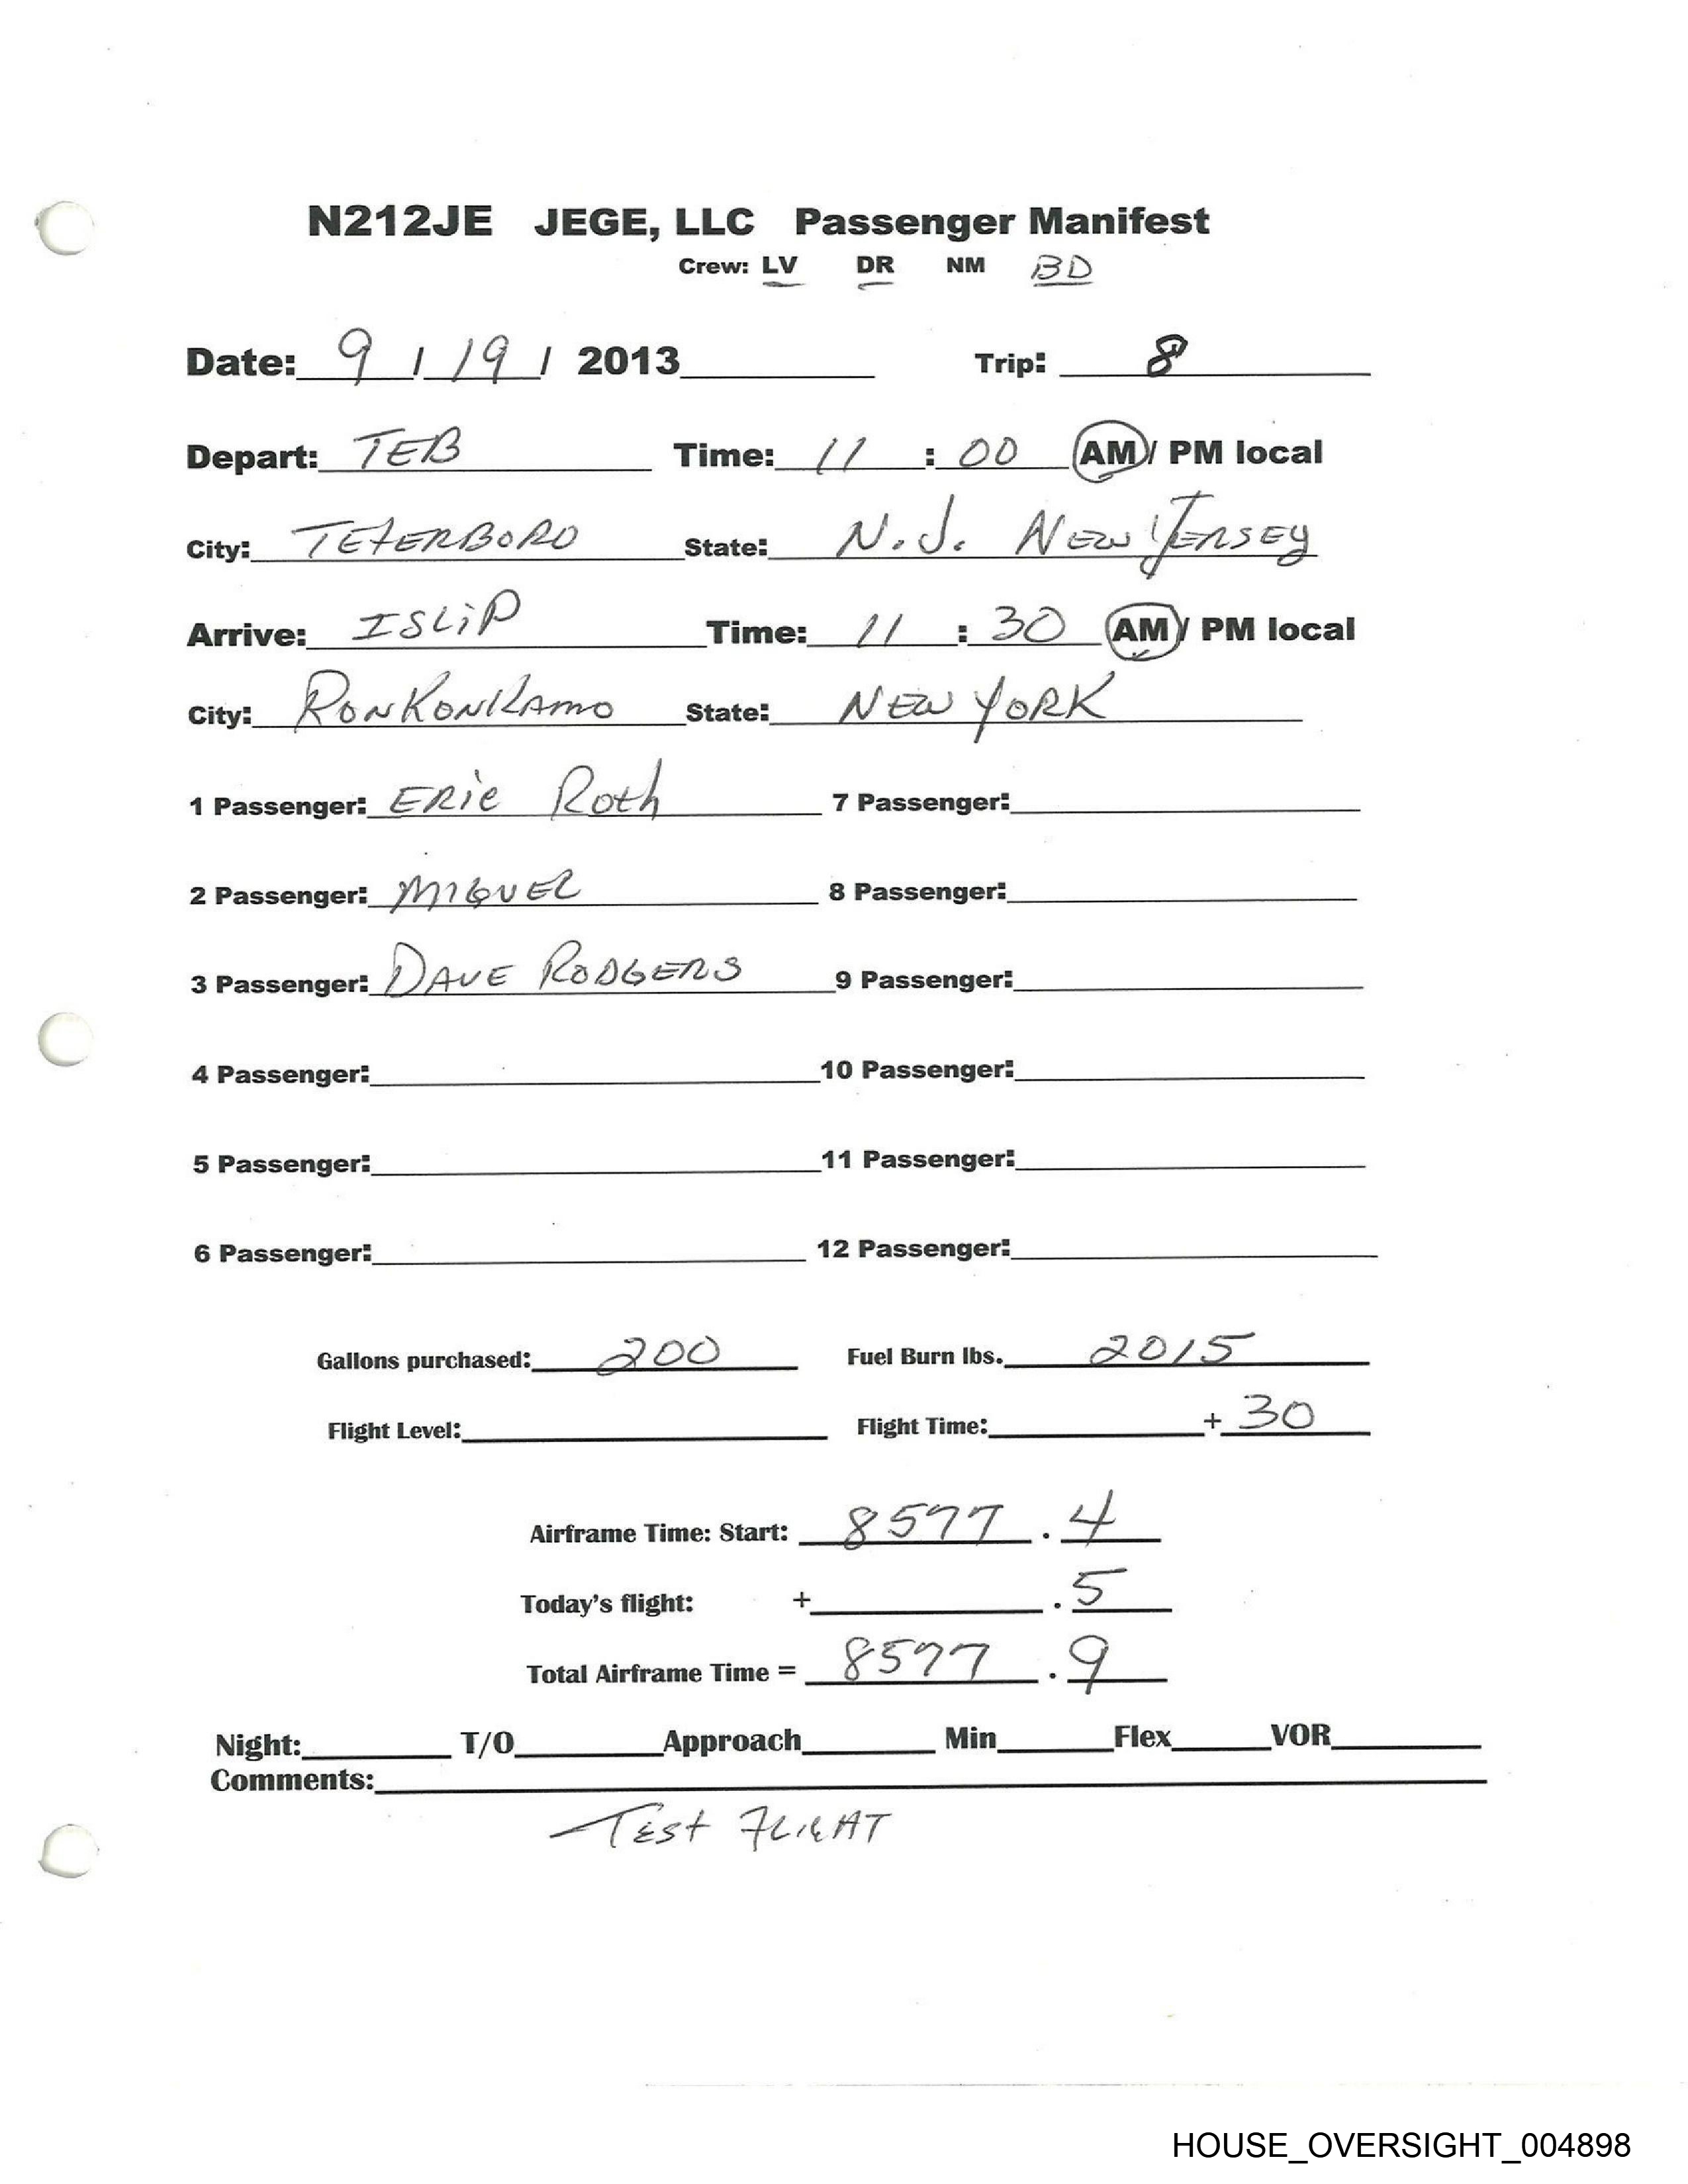 N212JE JEGE, LLC Passenger Manifest
Crew: LV DR NM BD
Date: 9 / 19 / 2013 Trip: 8
Depart: TEB Time: 11 : 00 AM / PM local
City: TETERBORO State: N.J. NEW JERSEY
Arrive: ISLIP Time: 11 : 30 AM / PM local
City: RONKONKAMO State: NEW YORK
1 Passenger: ERIC Roth 7 Passenger:
2 Passenger: MIGUEL 8 Passenger:
3 Passenger: DAVE RODGERS 9 Passenger:
4 Passenger: 10 Passenger:
5 Passenger: 11 Passenger:
6 Passenger: 12 Passenger:
Gallons purchased: 200 Fuel Burn lbs. 2015
Flight Level: Flight Time: + 30
Airframe Time: Start: 8577 . 4
Today's flight: + . 5
Total Airframe Time = 8577 . 9
Night: T/O Approach Min Flex VOR
Comments:
TEST FLIGHT
HOUSE_OVERSIGHT_004898